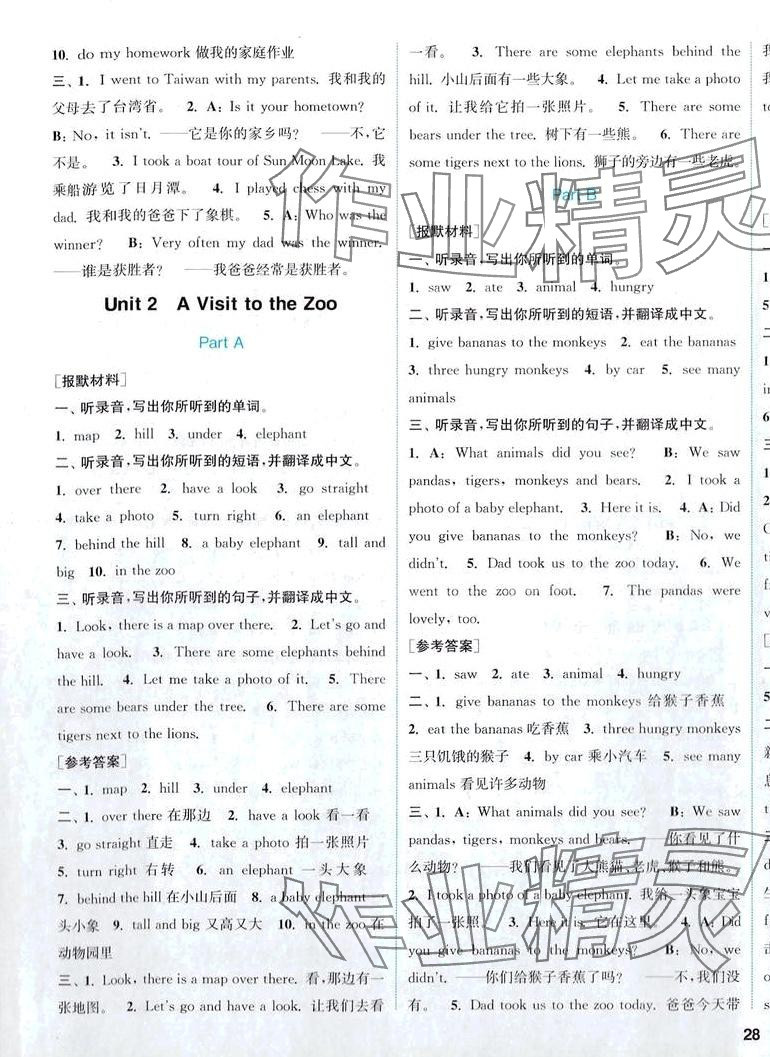 10. do my homework 做我的家庭作业
三、1. I went to Taiwan with my parents. 我和我的
父母去了台湾省。 2. A: Is it your hometown?
B: No, it isn't. ——它是你的家乡吗? ——不,它
不是。 3. I took a boat tour of Sun Moon Lake. 我
乘船游览了日月潭。 4. I played chess with my
dad. 我和我的爸爸下了象棋。 5. A: Who was the
winner? B: Very often my dad was the winner.
——谁是获胜者? ——我爸爸经常是获胜者。
Unit 2 A Visit to the Zoo
Part A
[报默材料]
一、听录音,写出你所听到的单词。
1. map 2. hill 3. under 4. elephant
二、听录音,写出你所听到的短语,并翻译成中文。
1. over there 2. have a look 3. go straight
4. take a photo 5. turn right 6. an elephant
7. behind the hill 8. a baby elephant 9. tall and
big 10. in the zoo
三、听录音,写出你所听到的句子,并翻译成中文。
1. Look, there is a map over there. 2. Let's go and
have a look. 3. There are some elephants behind
the hill. 4. Let me take a photo of it. 5. There are
some bears under the tree. 6. There are some
tigers next to the lions.
[参考答案]
一、1. map 2. hill 3. under 4. elephant
二、1. over there 在那边 2. have a look 看一看
3. go straight 直走 4. take a photo 拍一张照片
5. turn right 右转 6. an elephant 一头大象
7. behind the hill 在小山后面 8. a baby elephant 一
头小象 9. tall and big 又高又大 10. in the zoo 在
动物园里
三、1. Look, there is a map over there. 看,那边有一
张地图。 2. Let's go and have a look. 让我们去看
一看。 3. There are some elephants behind the
hill. 小山后面有一些大象。 4. Let me take a photo
of it. 让我给它拍一张照片。 5. There are some
bears under the tree. 树下有一些熊。 6. There are
some tigers next to the lions. 狮子的旁边有一些老虎。
Part B
[报默材料]
一、听录音,写出你所听到的单词。
1. saw 2. ate 3. animal 4. hungry
二、听录音,写出你所听到的短语,并翻译成中文。
1. give bananas to the monkeys 2. eat the bananas
3. three hungry monkeys 4. by car 5. see many
animals
三、听录音,写出你所听到的句子,并翻译成中文。
1. A: What animals did you see? B: We saw
pandas, tigers, monkeys and bears. 2. I took a
photo of a baby elephant. 3. Here it is. 4. A: Did
you give bananas to the monkeys? B: No, we
didn't. 5. Dad took us to the zoo today. 6. We
went to the zoo on foot. 7. The pandas were
lovely, too.
[参考答案]
一、1. saw 2. ate 3. animal 4. hungry
二、1. give bananas to the monkeys 给猴子香蕉
2. eat the bananas 吃香蕉 3. three hungry monkeys
三只饥饿的猴子 4. by car 乘小汽车 5. see many
animals 看见许多动物
三、1. A: What animals did you see? B: We saw
pandas, tigers, monkeys and bears. ——你看见了什
么动物? ——我们看见了大熊猫、老虎、猴子和熊。
2. I took a photo of a baby elephant. 我给一头象宝宝
拍了一张照。 3. Here it is. 它在这里。 4. A: Did
you give bananas to the monkeys? B: No, we
didn't. ——你们给猴子香蕉了吗? ——不,我们没
有。 5. Dad took us to the zoo today. 爸爸今天带
28
作业精灵
作业精灵